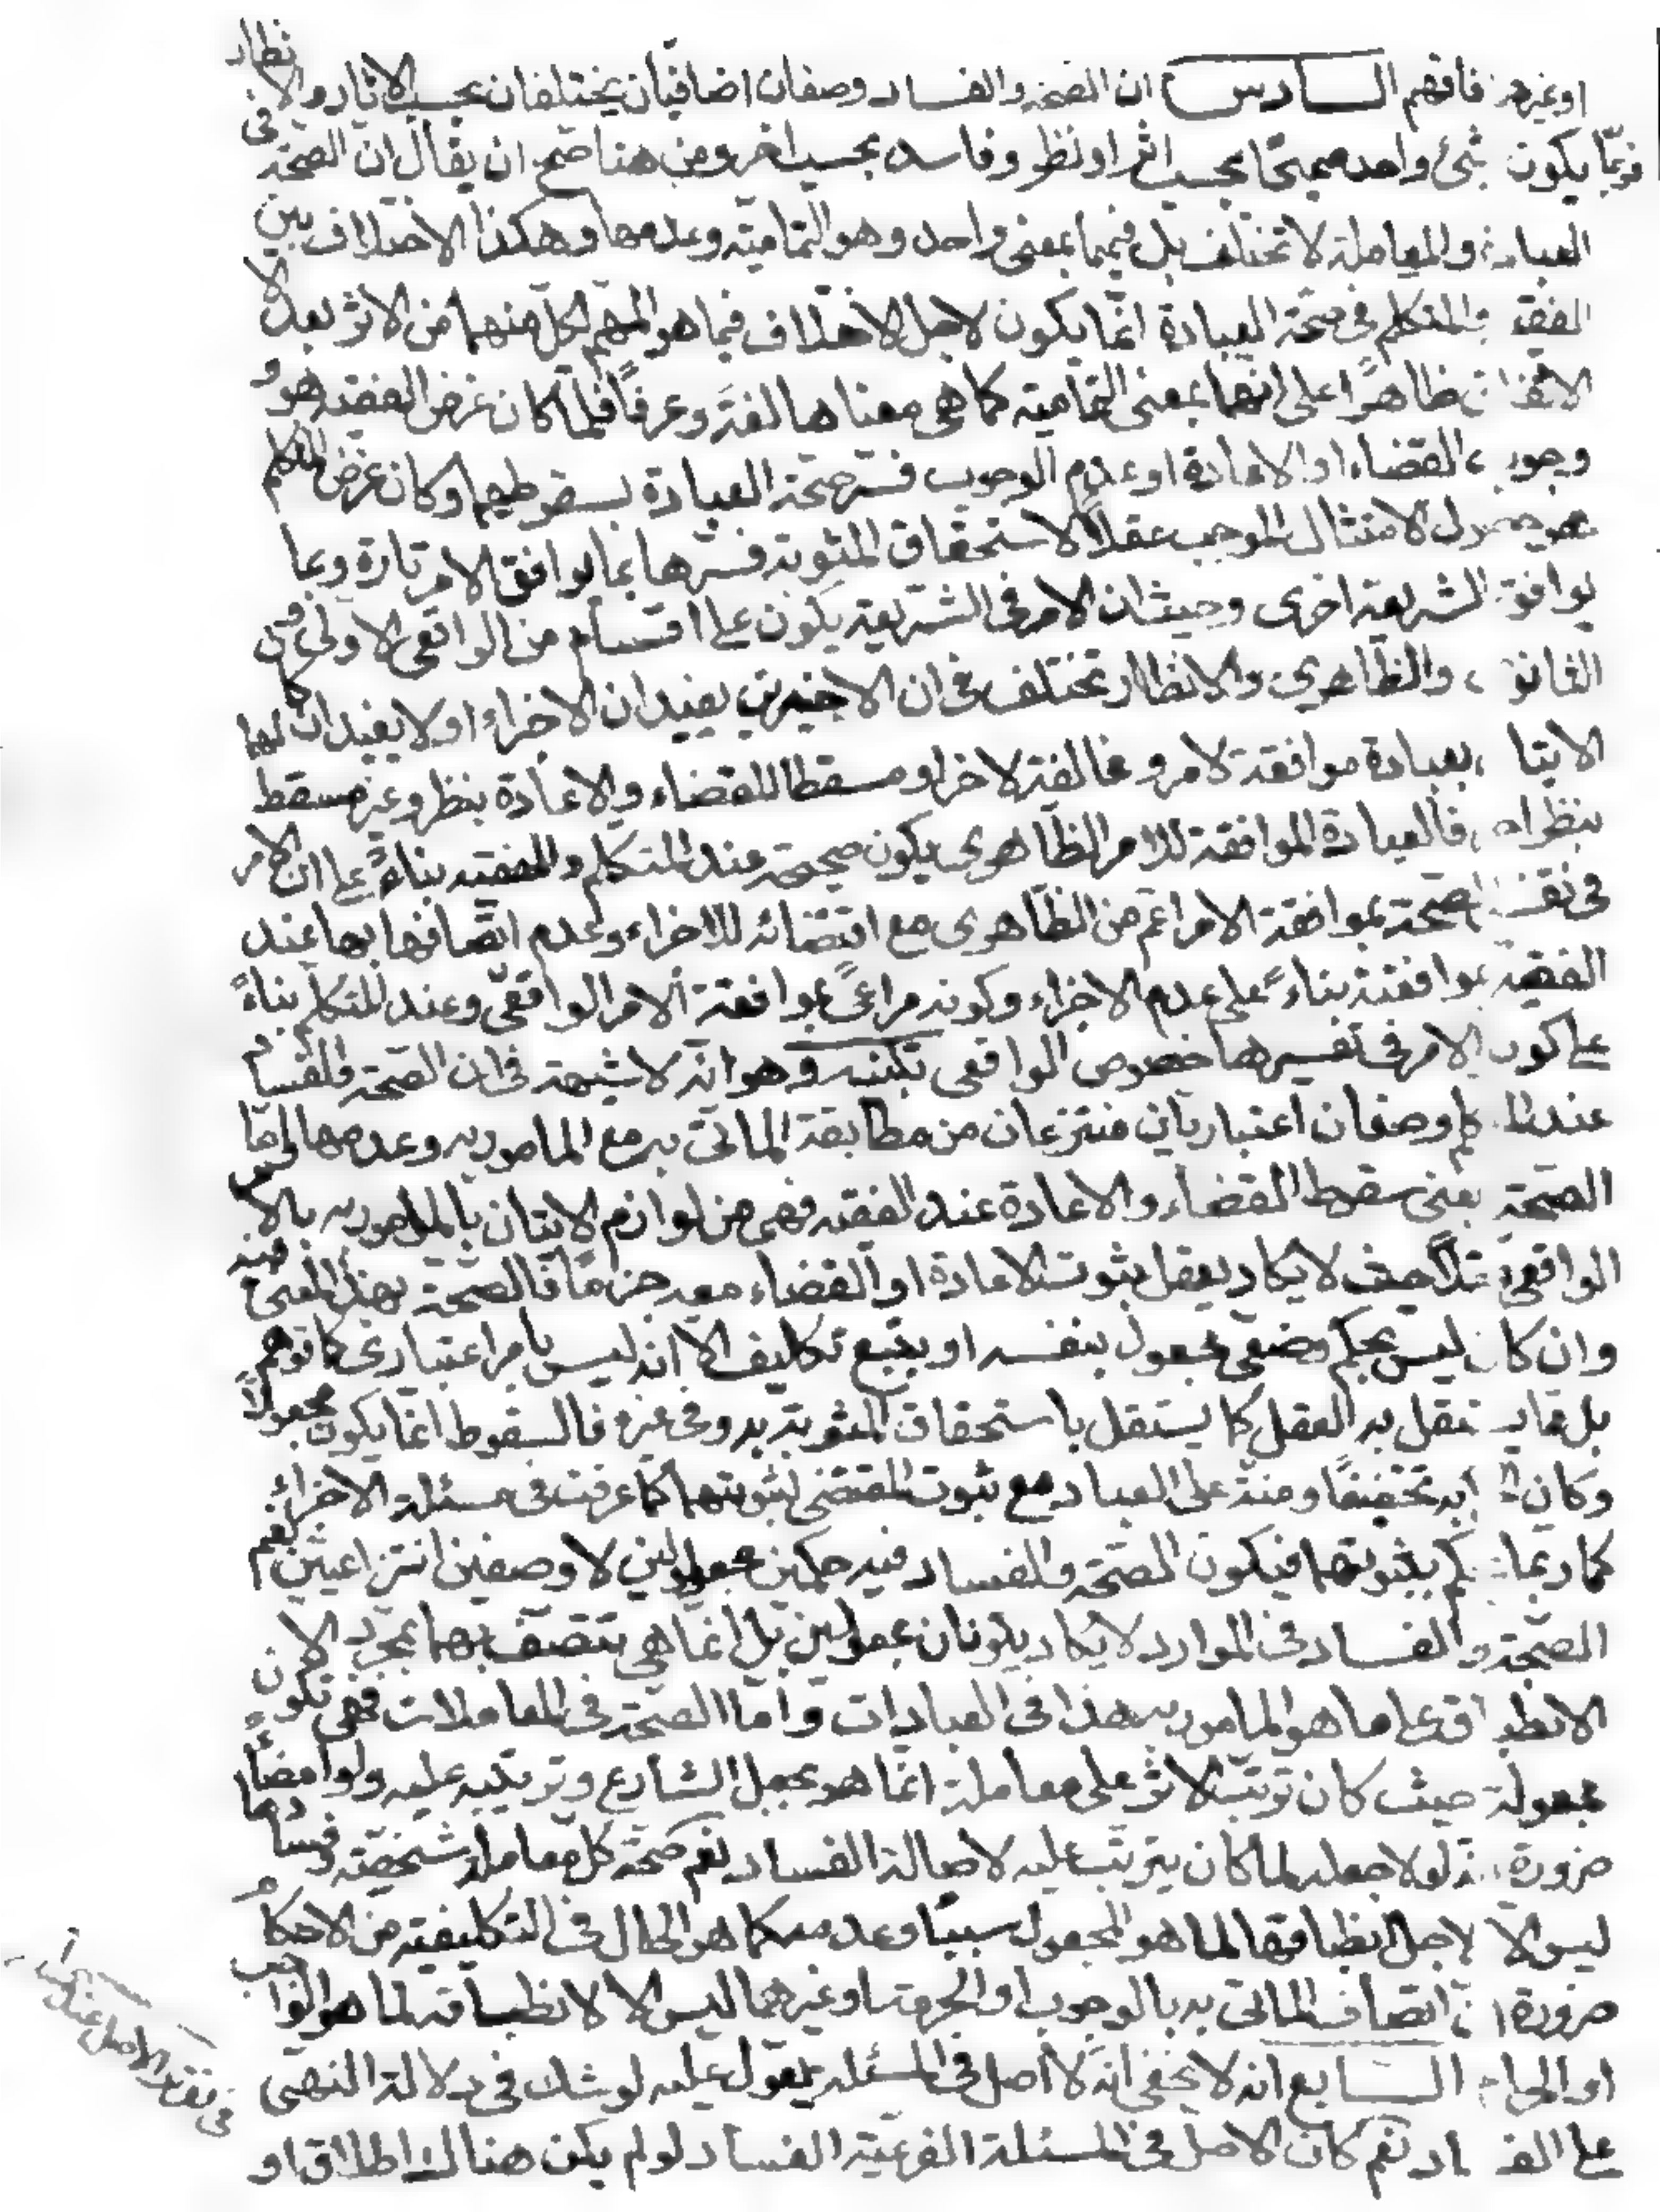 او غيرهم فافهم السادس ان الصحة والفساد وصفان اضافيان يختلفان بحسب الاثار والانظار
فربّما يكون شئ واحد صحيحًا بحسب اثر او نظر وفاسد بحسب اخر ومن هنا صح ان يقال ان الصحّة فى
العبادة والمعاملة لا تختلف بل فيهما بمعنى واحد وهو التماميّة وعدمها وهكذا الاختلاف بين
الفقيه والمتكلم فى صحّة العبادة انّما يكون لاجل الاختلاف فيما هو المهم لكل منهما من الاثر بعد الا
الاتفاق ظاهرًا على انهما بمعنى التماميّة كما هى معناها لغةً وعرفًا فلما كان غرض الفقيه هو و
وجوب القضاء او الاعادة او عدم الوجوب فسر صحّة العبادة بسقوطهما وكان غرض المتكلم
هو حصول الامتثال الموجب عقلاً لاستحقاق المثوبة فسرها بما يوافق الامر تارة وبما
يوافق الشريعة اخرى وحيث ان الامر فى الشريعة يكون على اقسام من الواقعى الاولى ومن
الثانوى والظاهرى والانظار تختلف فى ان الاخيرين يفيدان الاجزاء او لا يفيدان كما
الاتيا بعبادة موافقة لامر ومخالفة لاخر او مسقطا للقضاء والاعادة بنظر وغير مسقط
بنظر اخر فالعبادة الموافقة للامر الظاهرى يكون صحيحة عند المتكلم والفقيه بناءً على ان الامر
فى تفسير الصحة بموافقة الامر اعم من الظاهرى مع اقتضائه للاجزاء وعدم اتّصافها بها عند
الفقيه بموافقته بناءً على عدم الاجزاء وكونه مراعىً بموافقة الامر الواقعّى وعند المتكلم بناءً
على كون الامر فى تفسيرها خصوص الواقعى تكنيه وهو انّه لا شبهة فى ان الصحّة والفساد
عند المتكلم وصفان اعتباريان منتزعان من مطابقة الماتىّ به مع المامور به وعدمها وامّا
الصحّة بمعنى سقوط القضاء والاعادة عند الفقيه فهى من لوازم الاتيان بالمامور به بالامر
الواقعى عقلاً حيث لا يكاد يعقل ثبوت الاعادة او القضاء معه جزمًا فالصحّة بهذا المعنى فيه
وان كان ليس بحكم وضعى مجعول بنفسه او بتبع تكليف الا انه ليس بامر اعتبارى كما توهم
بل مما يستقل به العقل كما يستقل باستحقاق المثوبة به وفى غيره فالسقوط انما يكون مجعولاً
وكان الحكم به تخفيفًا ومنّة على العباد مع ثبوت المقتضى لثبوتهما كما عرفت فى مسئلة الاجزاء
كما ربّما يحكم بثبوتهما فيكون الصّحّة والفساد فيه حكمين مجعولين لا وصفين انتزاعيّين نعم
الصّحّة والفساد فى الموارد لا يكاد يكونان مجعولين بل انما هى يتّصف بهما بمجرد الا
الانطباق على ما هو المامور به هذا فى العبادات وامّا الصّحّة فى المعاملات فهى تكون
مجعولة حيث كان ترتّب الاثر على معاملة انّما هو بجعل الشارع وترتيبه عليه ولو امضاءً
ضرورة انه لولا جعله لما كان يترتّب عليه لاصالة الفساد نعم صحّة كل معاملة شخصيّة وفسادها
ليس الا لاجل انطباقها لما هو المجعول سببًا وعدمه كما هو الحال فى التكليفيّة من الاحكام
ضرورة ان اتصاف الماتى به بالوجوب او الحرمة او غيرهما ليس الا لانطباقه لما هو الواجب
او الحرام السابع انه لا يخفى انّه لا اصل فى المسئله يعوّل عليه لو شك فى دلالة النهى
على الفساد نعم كان الاصل فى المسئلة الفرعيّة الفساد لو لم يكن هناك اطلاق او